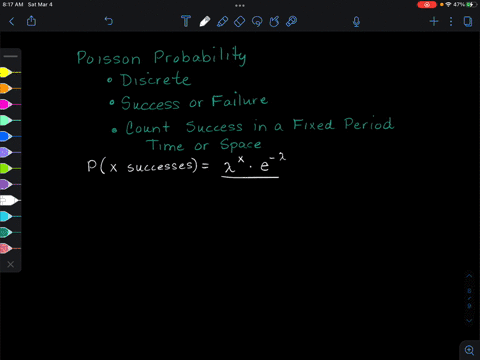 8:17 AM Sat Mar 4
47%
Poisson Probability
• Discrete
• Success or Failure
• Count Success in a Fixed Period
Time or Space
P(x successes) = λ^x · e^-λ